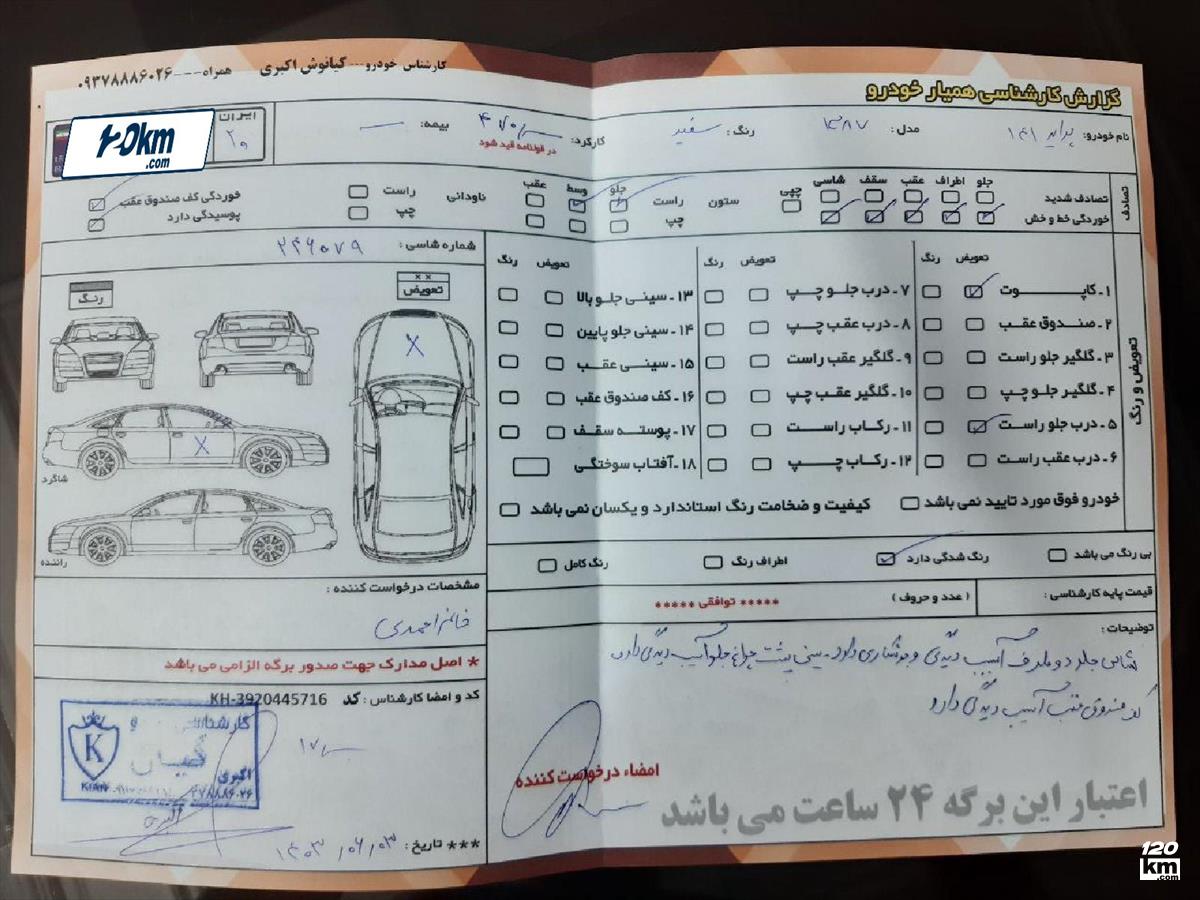 کارشناس خودرو...کیانوش اکبری همراه---۰۹۳۷۸۸۸۶۰۲۶
گزارش کارشناسی همیار خودرو
نام خودرو: پراید ۱۴۱ مدل: ۱۳۸۷ رنگ: سفید کارکرد: بیمه: —
در قولنامه قید شود
ایران
۲۰
120km
.com
تصادف
جلو اطراف عقب سقف شاسی
تصادف شدید
خوردگی خط و خش
چپی
ستون راست چپ
جلو وسط عقب
ناودانی راست چپ
خوردگی کف صندوق عقب
پوسیدگی دارد
شماره شاسی: ۲۴۶۰۷۹
رنگ
×× تعویض
X
X
شاگرد
راننده
تعویض و رنگ
تعویض رنگ
۱-کاپوت
۲-صندوق عقب
۳-گلگیر جلو راست
۴-گلگیر جلو چپ
۵-درب جلو راست
۶-درب عقب راست
تعویض رنگ
۷-درب جلو چپ
۸-درب عقب چپ
۹-گلگیر عقب راست
۱۰-گلگیر عقب چپ
۱۱-رکاب راست
۱۲-رکاب چپ
تعویض رنگ
۱۳-سینی جلو بالا
۱۴-سینی جلو پایین
۱۵-سینی عقب
۱۶-کف صندوق عقب
۱۷-پوسته سقف
۱۸-آفتاب سوختگی
خودرو فوق مورد تایید نمی باشد
کیفیت و ضخامت رنگ استاندارد و یکسان نمی باشد
بی رنگ می باشد رنگ شدگی دارد اطراف رنگ رنگ کامل
قیمت پایه کارشناسی: (عدد و حروف) ***** توافقی *****
توضیحات:
شاسی جلو دو طرف آسیب دیدگی و جوشکاری دارد - سینی پشت چراغ جلو آسیب دیدگی دارد
کف صندوق عقب آسیب دیدگی دارد
امضاء درخواست کننده
اعتبار این برگه ۲۴ ساعت می باشد
مشخصات درخواست کننده:
خانم احمدی
* اصل مدارک جهت صدور برگه الزامی می باشد
کد و امضا کارشناس: کد KH-3920445716
کارشناسی
کیان
اکبری
K
KIAN
*** تاریخ: ۱۴۰۳/۰۶/۰۳
120
km
.com